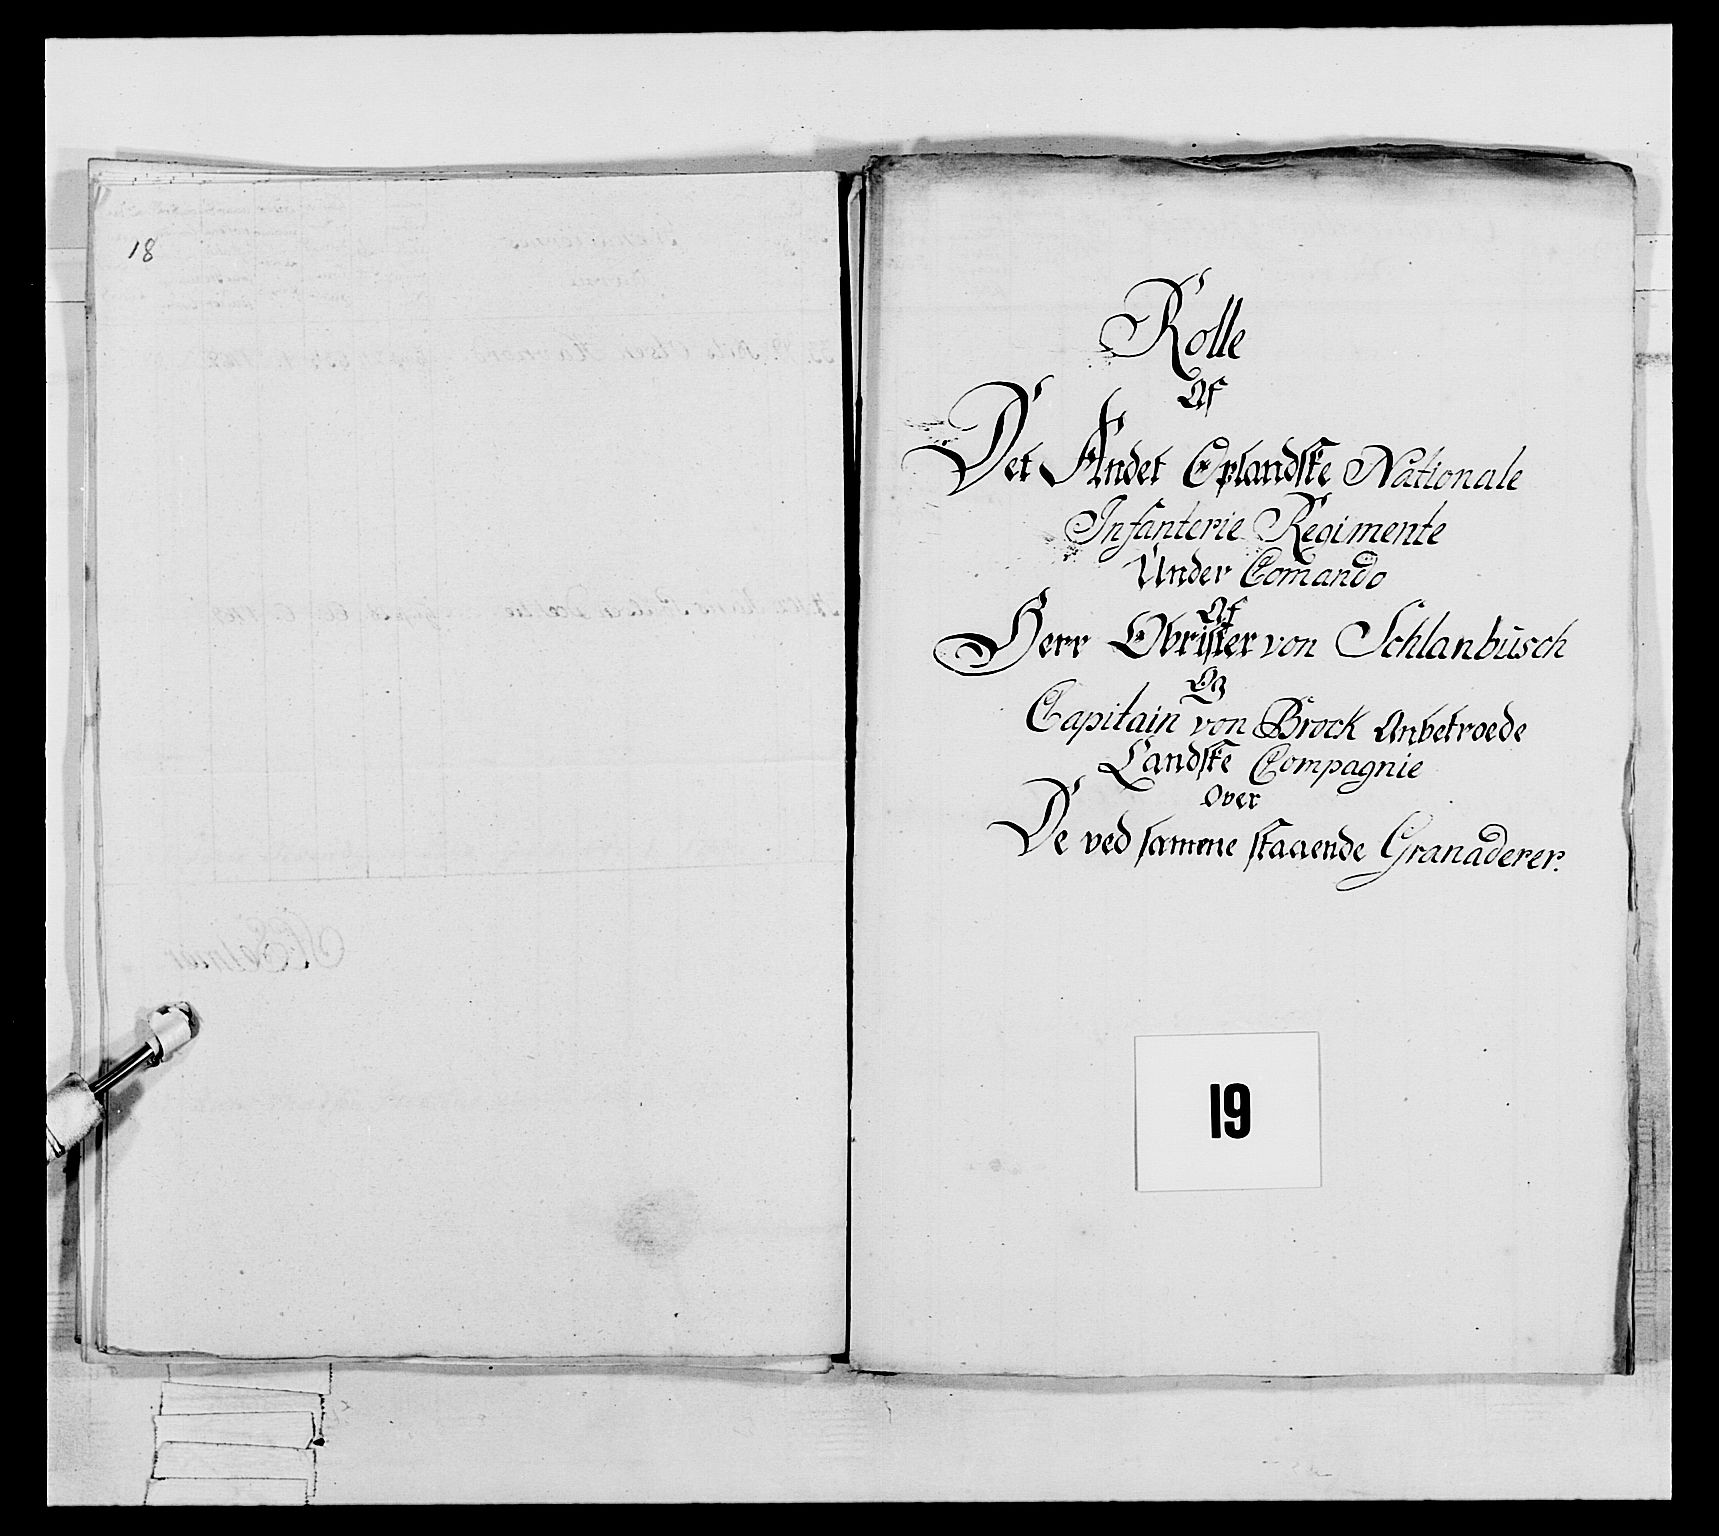 18
Rolle
Af
Det Andet Oplandske Nationale
Infanterie Regimente
Under Comando
Af
Herr Obrister von Schlanbusch
Og
Capitain von Brock Anbetroede
Landske Compagnie
Over
De ved samme staaende Granaderer.
19